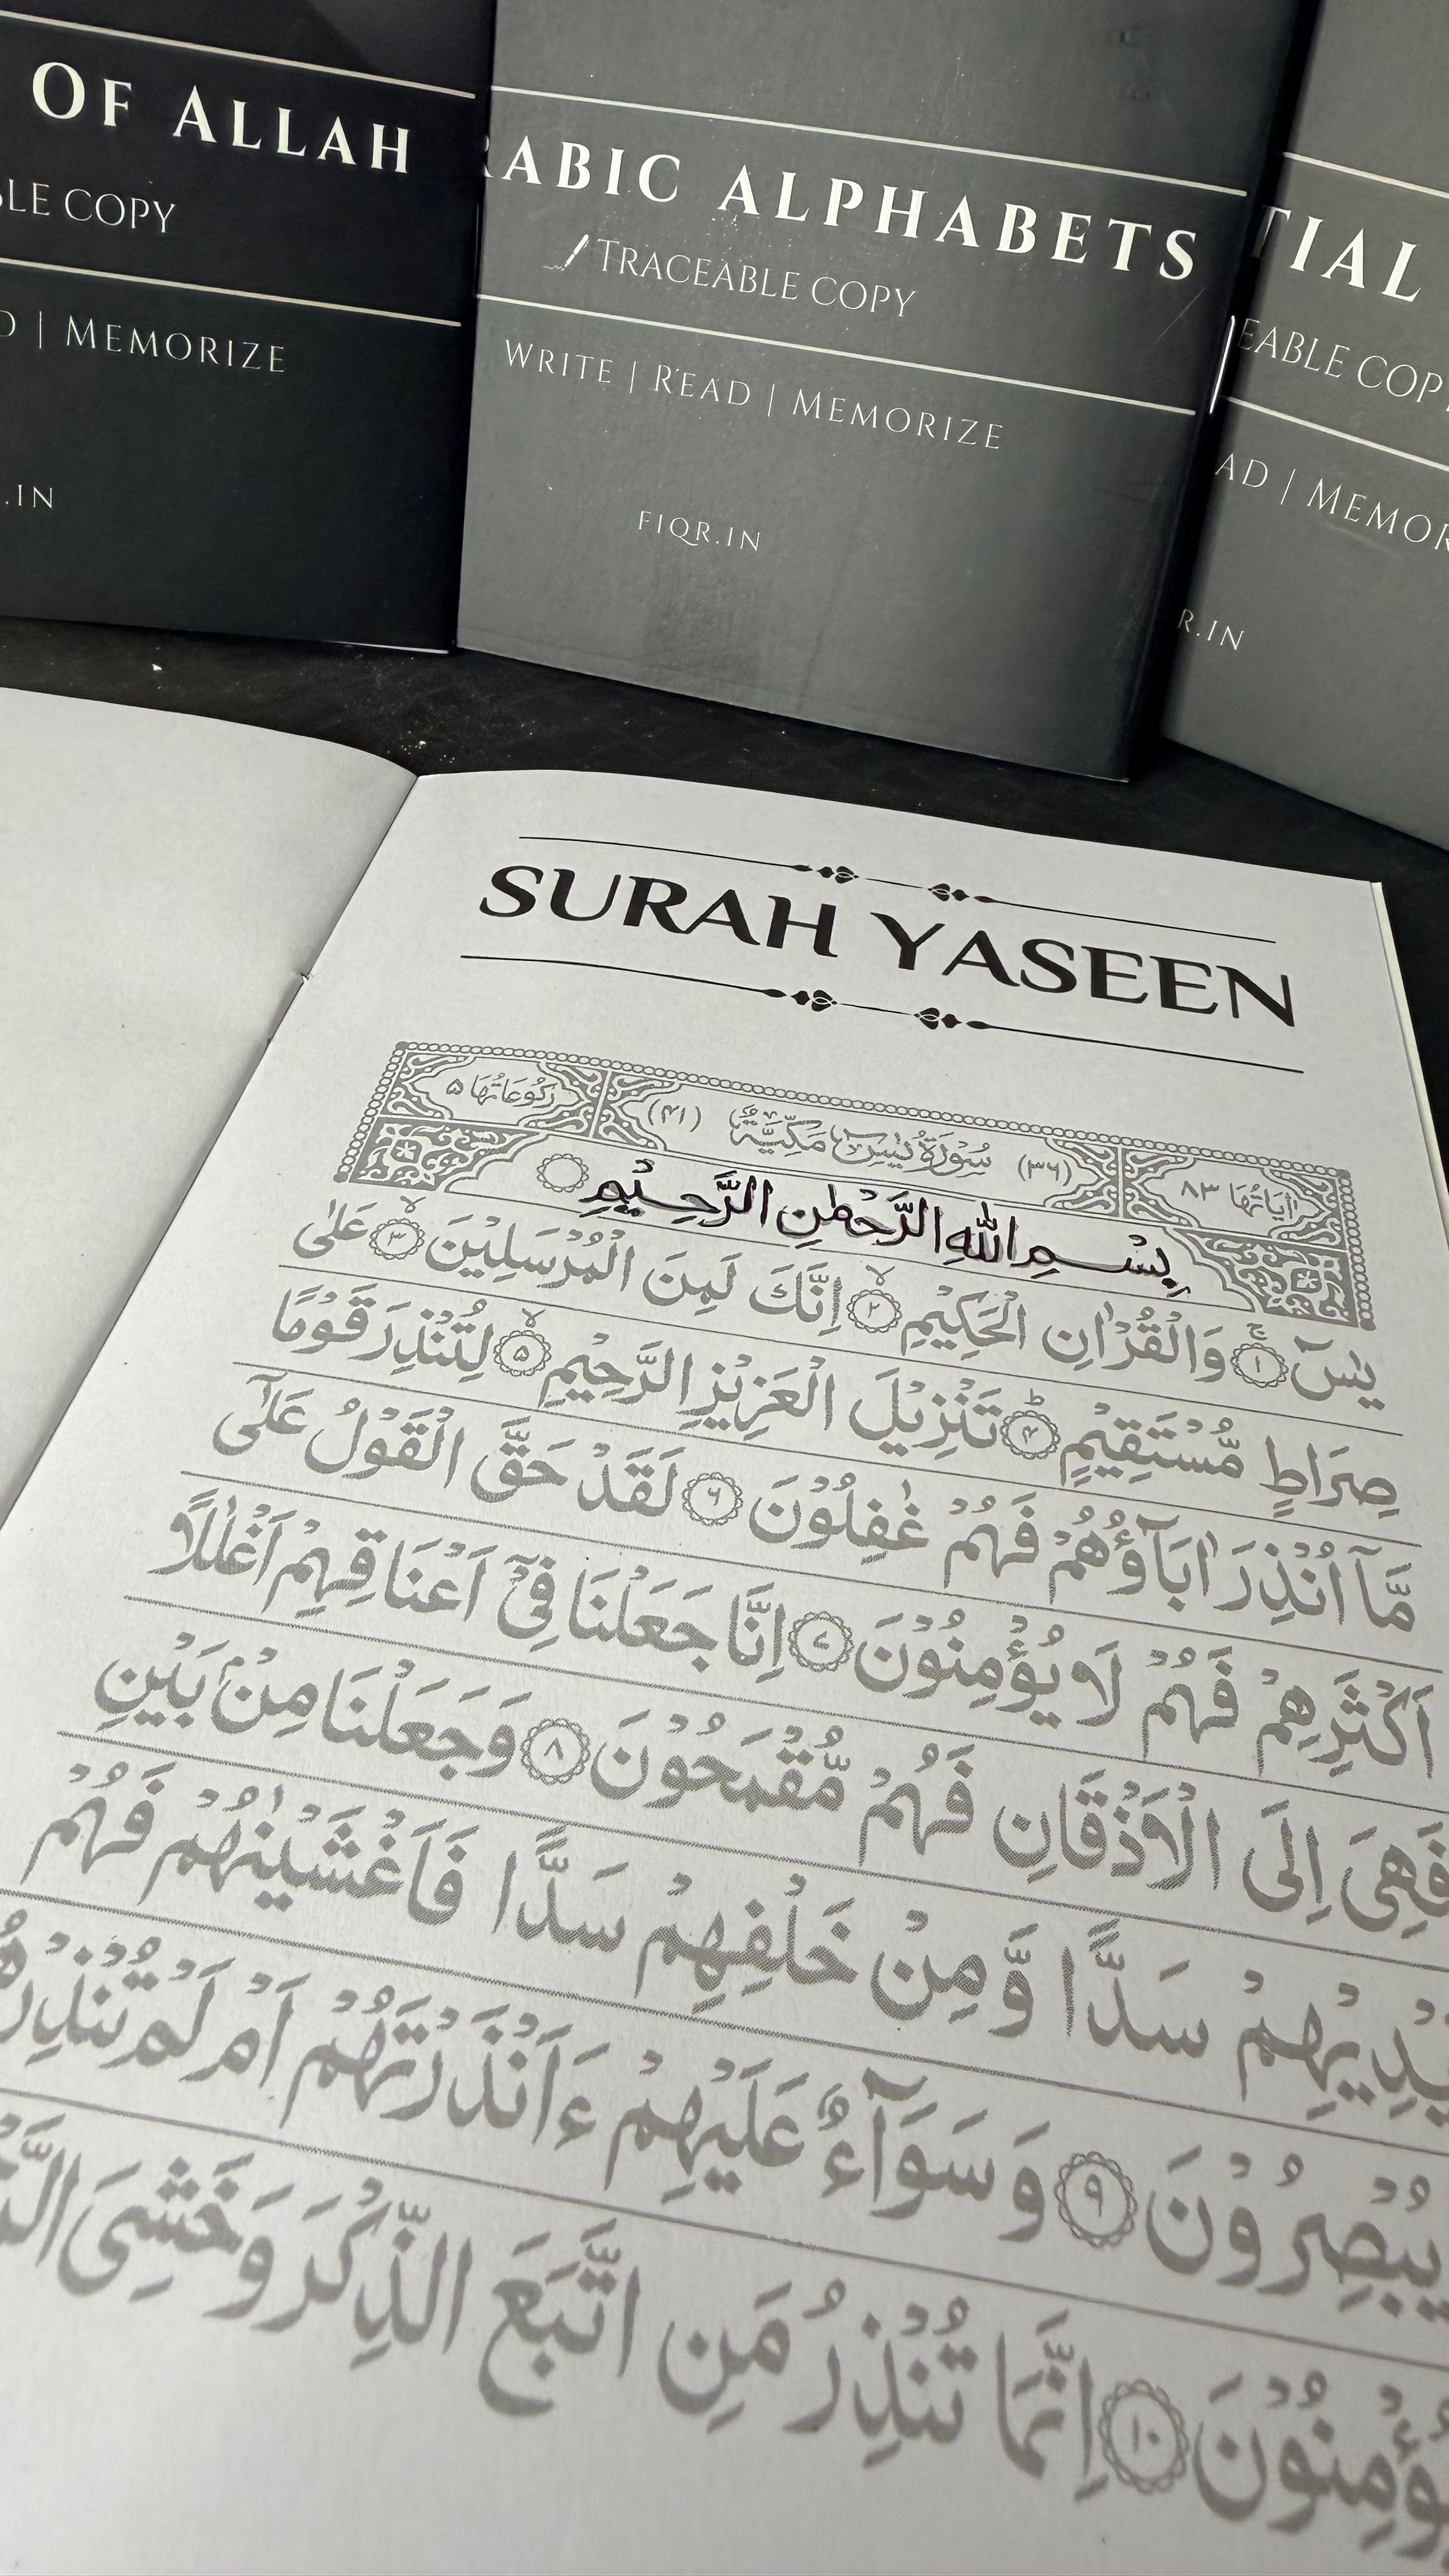 OF ALLAH
COPY
| MEMORIZE
.IN
ARABIC ALPHABETS
TRACEABLE COPY
WRITE | READ | MEMORIZE
FIQR.IN
SURAH YASEEN
اٰيَاتُهَا ٨٣ (٣٦) سُوْرَةُ يٰسٓ مَكِّيَّةٌ (٤١) رُكُوْعَاتُهَا ۵
بِسْمِ اللّٰهِ الرَّحْمٰنِ الرَّحِيْمِ
يٰسٓ ۚ ١ وَالْقُرْاٰنِ الْحَكِيْمِ ۙ ٢ اِنَّكَ لَمِنَ الْمُرْسَلِيْنَ ۙ ٣ عَلٰى
صِرَاطٍ مُّسْتَقِيْمٍ ؕ ۴ تَنْزِيْلَ الْعَزِيْزِ الرَّحِيْمِ ۙ ۵ لِتُنْذِرَ قَوْمًا
مَّاۤ اُنْذِرَ اٰبَآؤُهُمْ فَهُمْ غٰفِلُوْنَ ۶ لَقَدْ حَقَّ الْقَوْلُ عَلٰۤى
اَكْثَرِهِمْ فَهُمْ لَا يُؤْمِنُوْنَ ۷ اِنَّا جَعَلْنَا فِيْۤ اَعْنَاقِهِمْ اَغْلٰلًا
فَهِىَ اِلَى الْاَذْقَانِ فَهُمْ مُّقْمَحُوْنَ ٨ وَجَعَلْنَا مِنْۢ بَيْنِ
سَدًّا وَّمِنْ خَلْفِهِمْ سَدًّا فَاَغْشَيْنٰهُمْ فَهُمْ
يُبْصِرُوْنَ ٩ وَسَوَآءٌ عَلَيْهِمْ ءَاَنْذَرْتَهُمْ اَمْ لَمْ
١٠ اِنَّمَا تُنْذِرُ مَنِ اتَّبَعَ الذِّكْرَ وَخَشِىَ